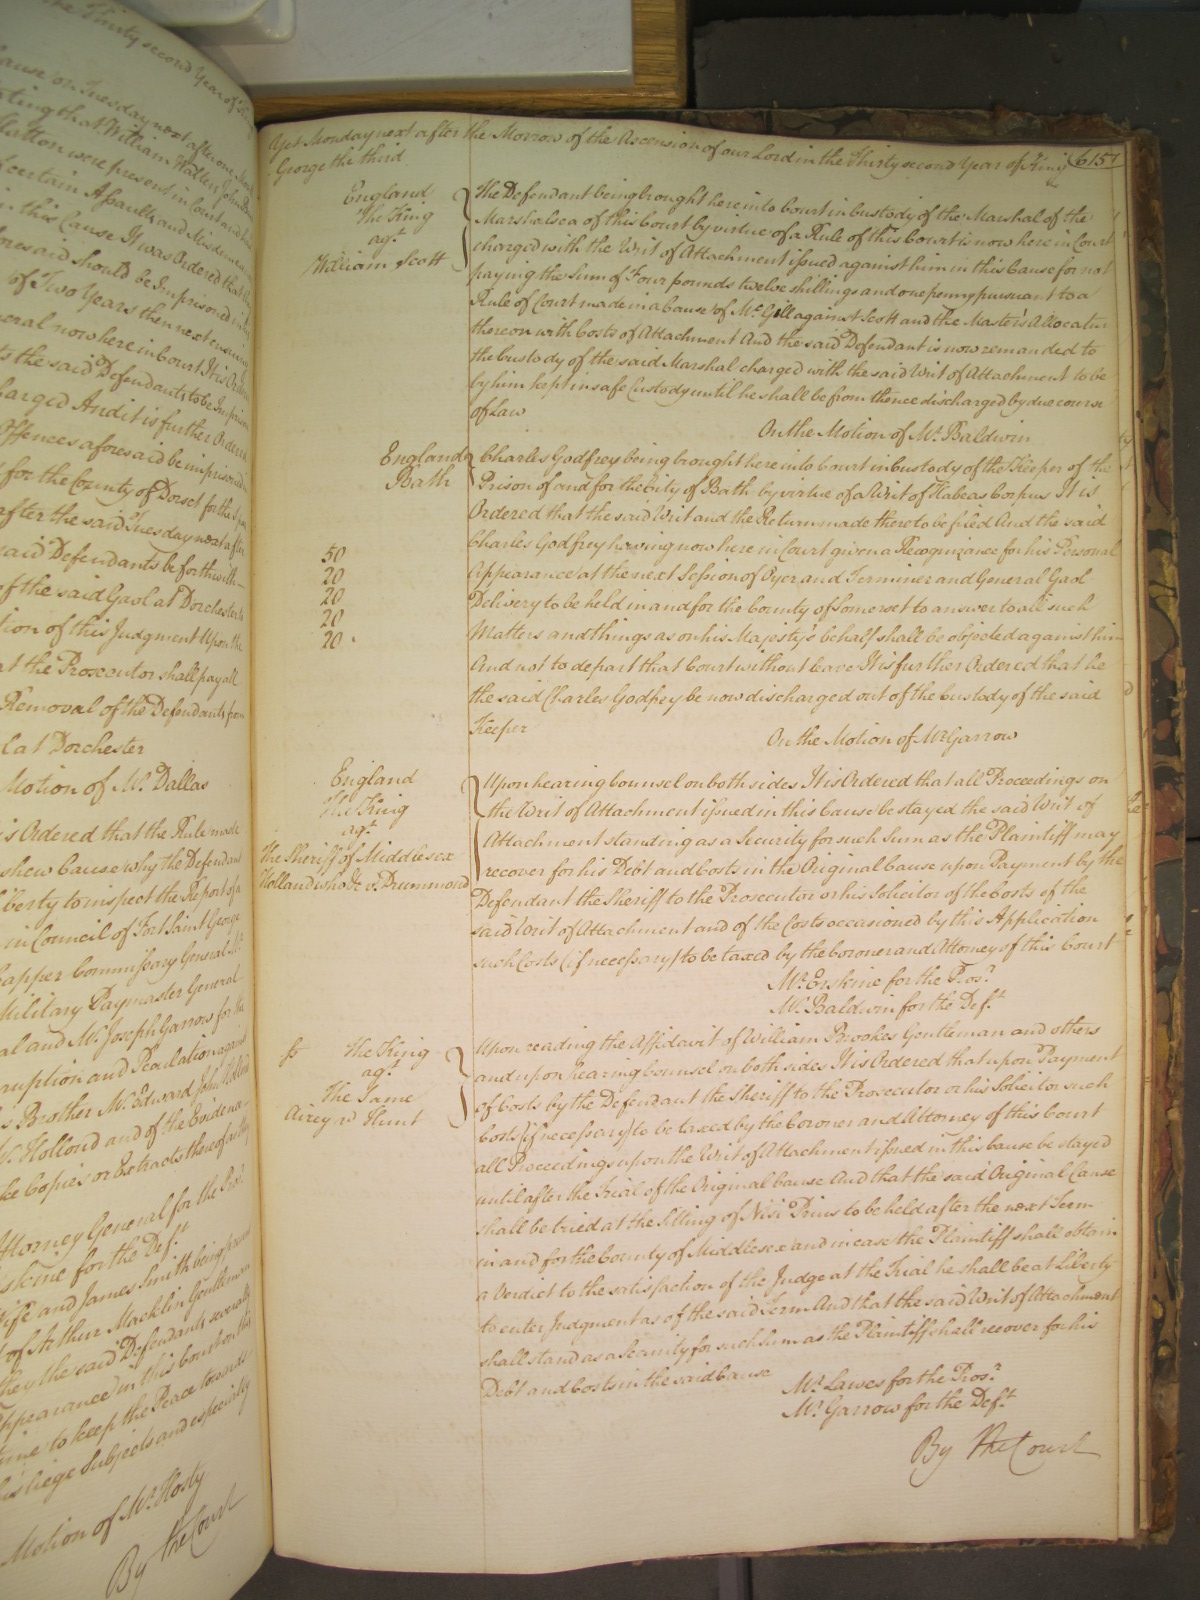 the Thirty second Year of King
Cause on Tuesday next after one Month
stating that William Hatley John
Hatton were present in Court and
of certain Assaults and Misdemeanors
in this Cause It was Ordered that
aforesaid should be Imprisoned in
of Two Years then next ensuing
General now here in Court It is Ordered
the said Defendants to be Imprisoned
charged And it is further Ordered
Offences aforesaid be imprisoned
for the County of Dorset for the
after the said Tuesday next after
said Defendants be forthwith
of the said Gaol at Dorchester
tion of this Judgment Upon the
at the Prosecutor shall pay all
Removal of the Defendants from
at Dorchester
Motion of Mr. Dallas
is Ordered that the Rule made
shew Cause why the Defendant
liberty to inspect the Report of a
in Council of Fort Saint George
Commissary General
Military Paymaster General
and Mr. Joseph Garrow for the
Corruption and Peculation against
his Brother Mr. Edward John Hollond
W. Hollond and of the Evidence
take Copies or Extracts thereof as they
Attorney General for the Pros.r
Erskine for the Def.t
Wife and James Smith being present
of Arthur Macklin Gentleman
they the said Defendants severally
Appearance in this Court on the
time to keep the Peace towards
his liege Subjects and especially
Motion of Mr. Hosty
By the Court
Yet Monday next after the Morrow of the Ascension of our Lord in the Thirty second Year of King
George the third
615
England
The King
ag.t
William Scott
The Defendant being brought here into Court in Custody of the Marshal of the
Marshalsea of this Court by virtue of a Rule of this Court is now here in Court
charged with the Writ of Attachment issued against him in this Cause for not
paying the Sum of Four pounds twelve shillings and one penny pursuant to a
Rule of Court made in a Cause of McGill against Scott and the Master's Allocatur
thereon with Costs of Attachment And the said Defendant is now remanded to
the Custody of the said Marshal charged with the said Writ of Attachment to be
by him kept in safe Custody until he shall be from thence discharged by due course
of Law
On the Motion of Mr. Baldwin
England
Bath
Charles Godfrey being brought here into Court in Custody of the Keeper of the
Prison of and for the City of Bath by virtue of a Writ of Habeas Corpus It is
Ordered that the said Writ and the Return made thereto be filed And the said
Charles Godfrey having now here in Court given a Recognizance for his Personal
50
Appearance at the next Session of Oyer and Terminer and General Gaol
20
Delivery to be held in and for the County of Somerset to answer to all such
20
20
Matters and things as on his Majesty's behalf shall be objected against him
20
And not to depart that Court without leave It is further Ordered that he
the said Charles Godfrey be now discharged out of the Custody of the said
Keeper
On the Motion of Mr. Garrow
England
The King
ag.t
The Sheriff of Middlesex
Holland who &c v. Drummond
Upon hearing Counsel on both sides It is Ordered that all Proceedings on
the Writ of Attachment issued in this Cause be stayed the said Writ of
Attachment standing as a Security for such Sum as the Plaintiff may
recover for his Debt and Costs in the Original Cause upon Payment by the
Defendant the Sheriff to the Prosecutor or his Solicitor of the Costs of the
said Writ of Attachment and of the Costs occasioned by this Application
such Costs (if necessary) to be taxed by the Coroner and Attorney of this Court
Mr. Erskine for the Pros.r
Mr. Baldwin for the Def.t
The King
ag.t
The Same
Airey v. Hunt
Upon reading the Affidavit of William Brookes Gentleman and others
and upon hearing Counsel on both sides It is Ordered that upon Payment
of Costs by the Defendant the Sheriff to the Prosecutor or his Solicitor such
Costs (if necessary) to be taxed by the Coroner and Attorney of this Court
all Proceedings upon the Writ of Attachment issued in this Cause be stayed
until after the Trial of the Original Cause And that the said Original Cause
shall be tried at the Sitting of Nisi Prius to be held after the next Term
in and for the County of Middlesex and in case the Plaintiff shall obtain
a Verdict to the satisfaction of the Judge at the Trial he shall be at Liberty
to enter Judgment as of the said Term And that the said Writ of Attachment
shall stand as a Security for such Sum as the Plaintiff shall recover for his
Debt and Costs in the said Cause
Mr. Lawes for the Pros.r
Mr. Garrow for the Def.t
By the Court